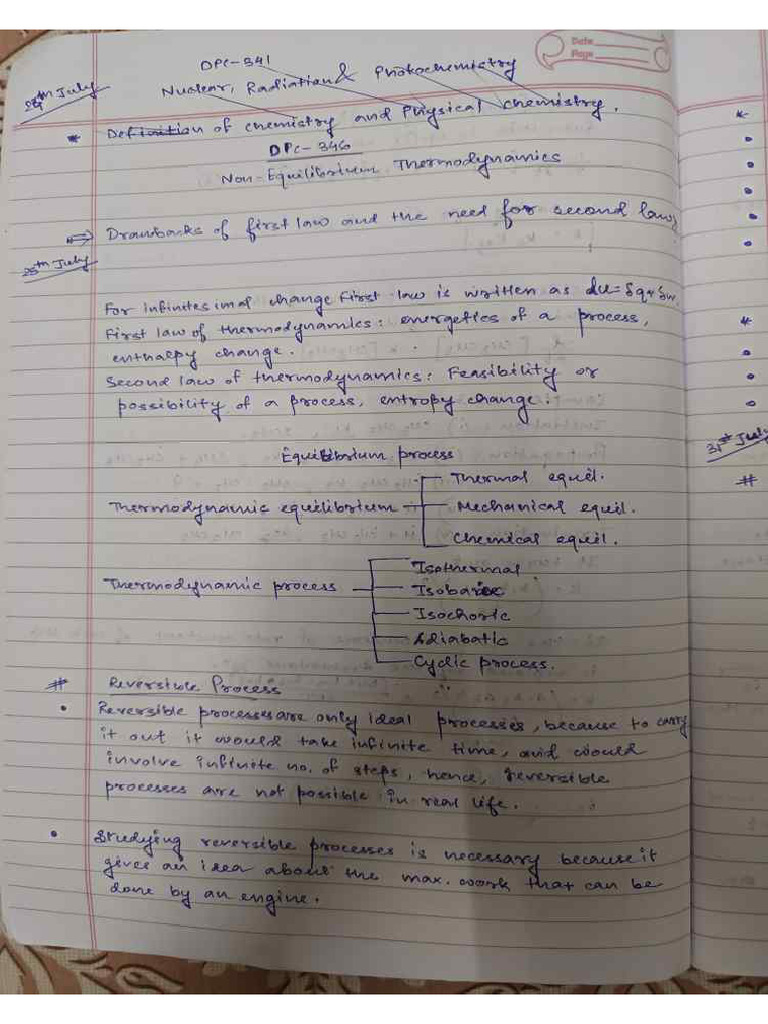 Date
Page
DPC-341
24th July
Nuclear, Radiation & Photochemistry
* Definition of chemistry and Physical chemistry.
DPC-346
Non-Equilibrium Thermodynamics
⇒ Drawbacks of first law and the need for second law
25th July
For infinitesimal change first law is written as du=δq+δw.
First law of thermodynamics: energetics of a process,
enthalpy change.
Second law of thermodynamics: Feasibility or
possibility of a process, entropy change.
Equilibrium process
Thermal equil.
Thermodynamic equilibrium
Mechanical equil.
Chemical equil.
Isothermal
Thermodynamic process
Isobaric
Isochoric
Adiabatic
Cyclic process.
# Reversible Process
• Reversible processes are only ideal processes, because to carry
it out it would take infinite time, and would
involve infinite no. of steps, hence, reversible
processes are not possible in real life.
• Studying reversible processes is necessary because it
gives an idea about the max. work that can be
done by an engine.
31st July
#